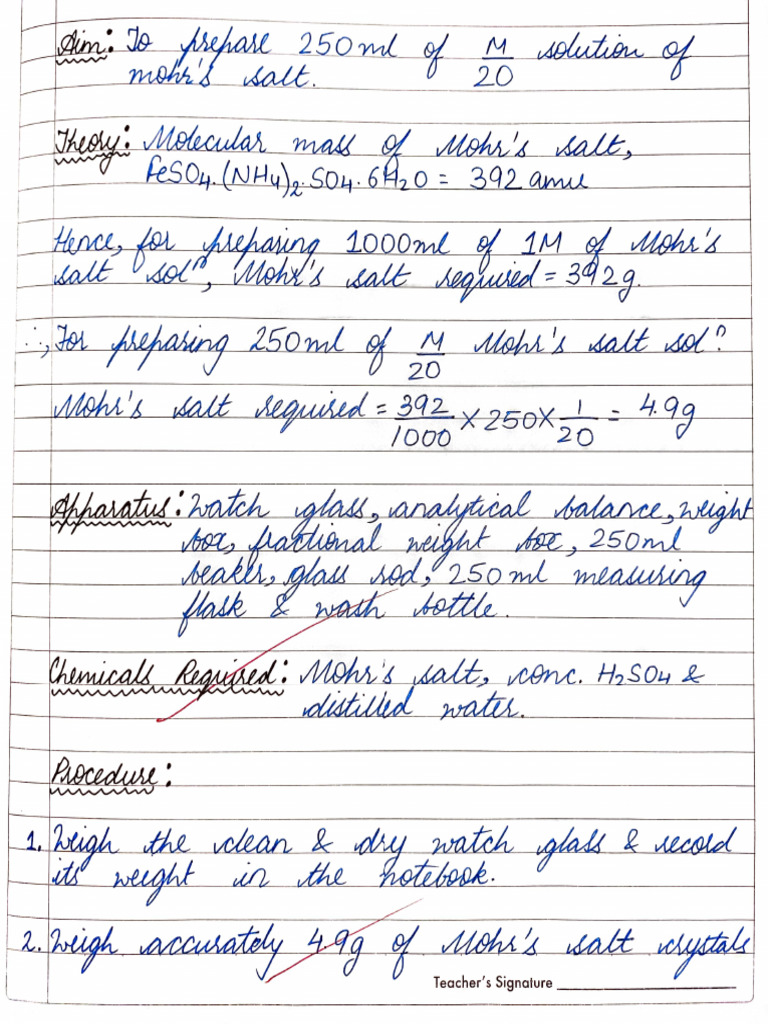 Aim: To prepare 250ml of M/20 solution of
mohr's salt.
Theory: Molecular mass of Mohr's salt,
FeSO4.(NH4)2.SO4.6H2O = 392 amu
Hence, for preparing 1000ml of 1M of Mohr's
salt solⁿ, Mohr's salt required = 392g.
∴, For preparing 250ml of M/20 Mohr's salt solⁿ
Mohr's salt required = 392/1000 X 250 X 1/20 = 4.9g
Apparatus: Watch glass, analytical balance, weight
box, fractional weight box, 250ml
beaker, glass rod, 250ml measuring
flask & wash bottle.
Chemicals Required: Mohr's salt, conc. H2SO4 &
distilled water.
Procedure:
1. Weigh the clean & dry watch glass & record
its weight in the notebook.
2. Weigh accurately 4.9g of Mohr's salt crystals
Teacher's Signature